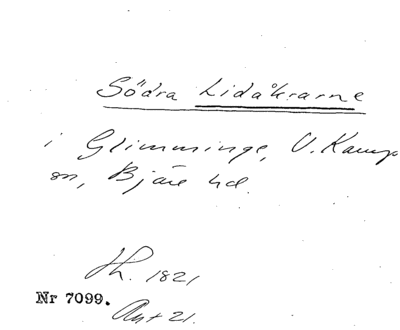 Södra Lidåkrarne
i Glimminge, V. Karup
sn, Bjäre hd.
Lh. 1821
Nr 7099.
Akt 21.